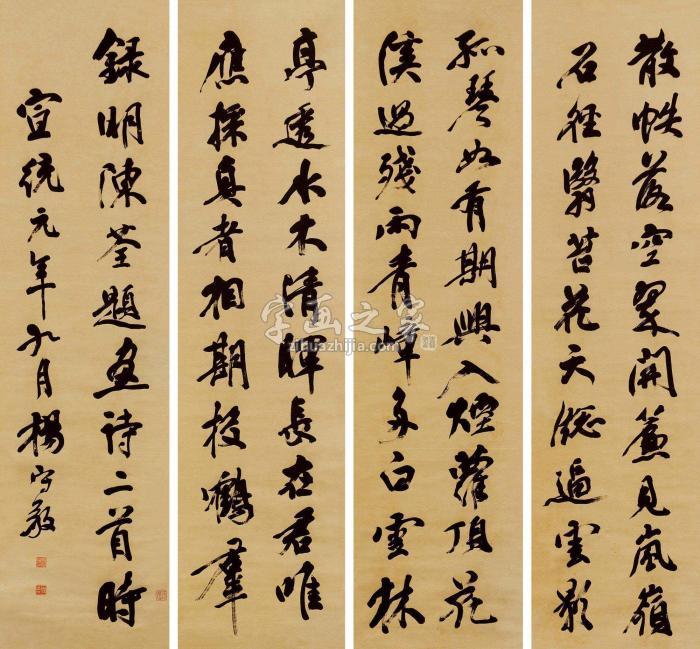 散帙落空翠開簾見嵐嶺
石徑翳苔花天窓逼雲影
孤琴如有期興入煙蘿頂花
溪過殘雨青嶂多白雲林
亭水木清暉長在君唯
應採真者相期投鶴羣
錄明陳荃題畫詩二首時
宣統元年九月楊守敬
字画之家
zihuazhijia.com